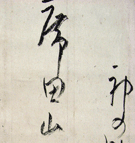 神の
席田山